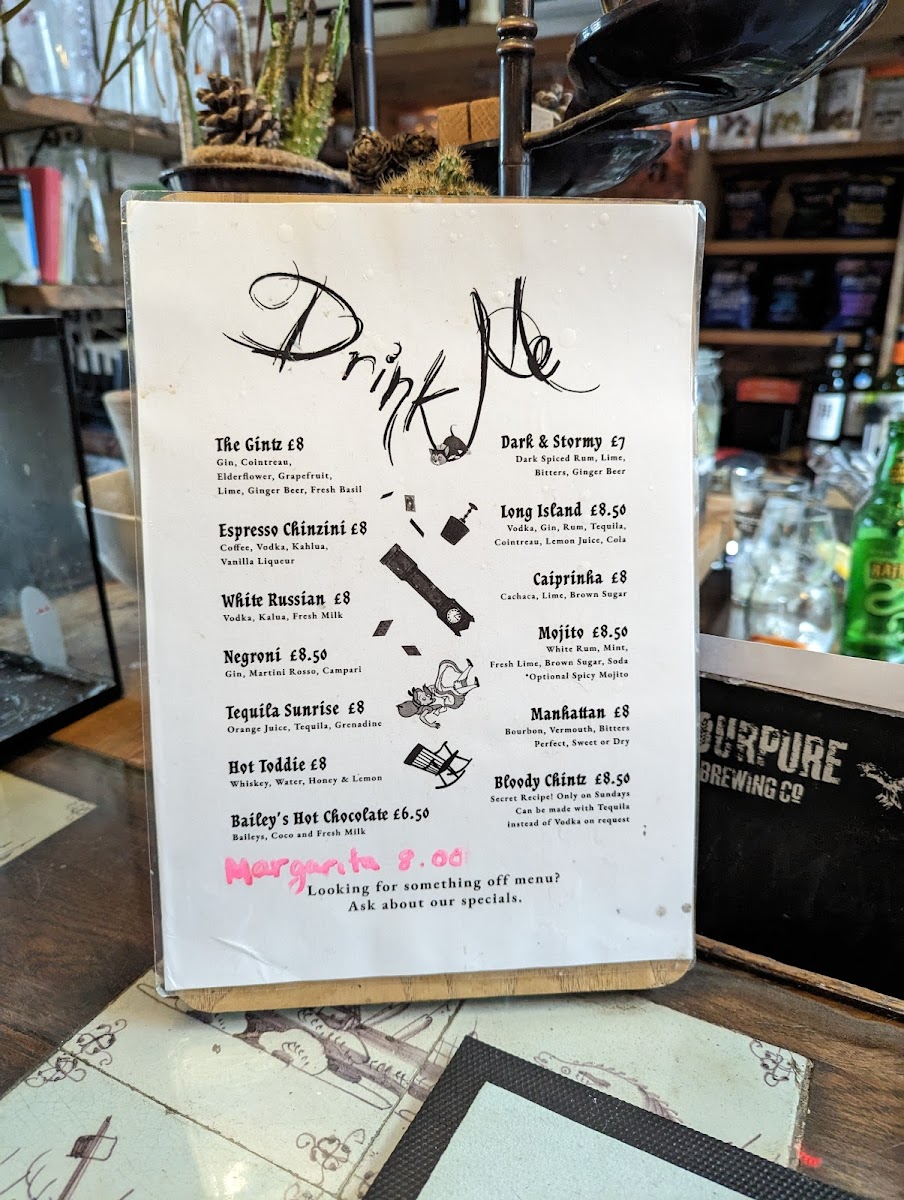 Drink Me
The Gintz £8
Gin, Cointreau,
Elderflower, Grapefruit,
Lime, Ginger Beer, Fresh Basil
Espresso Chinzini £8
Coffee, Vodka, Kahlua,
Vanilla Liqueur
White Russian £8
Vodka, Kalua, Fresh Milk
Negroni £8.50
Gin, Martini Rosso, Campari
Tequila Sunrise £8
Orange Juice, Tequila, Grenadine
Hot Toddie £8
Whiskey, Water, Honey & Lemon
Bailey's Hot Chocolate £6.50
Baileys, Coco and Fresh Milk
Margarita 8.00
Dark & Stormy £7
Dark Spiced Rum, Lime,
Bitters, Ginger Beer
Long Island £8.50
Vodka, Gin, Rum, Tequila,
Cointreau, Lemon Juice, Cola
Caiprinha £8
Cachaca, Lime, Brown Sugar
Mojito £8.50
White Rum, Mint,
Fresh Lime, Brown Sugar, Soda
*Optional Spicy Mojito
Manhattan £8
Bourbon, Vermouth, Bitters
Perfect, Sweet or Dry
Bloody Chintz £8.50
Secret Recipe! Only on Sundays
Can be made with Tequila
instead of Vodka on request
Looking for something off menu?
Ask about our specials.
OURPURE
BREWING CO